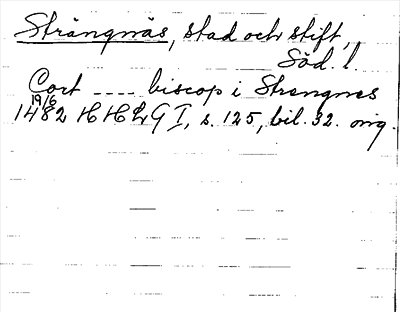 Strängnäs, stad och stift,
Söd. l.
Cort ---- biscop i Strengnes
19/6
1482 HHLG I, s. 125, bil. 32. orig.